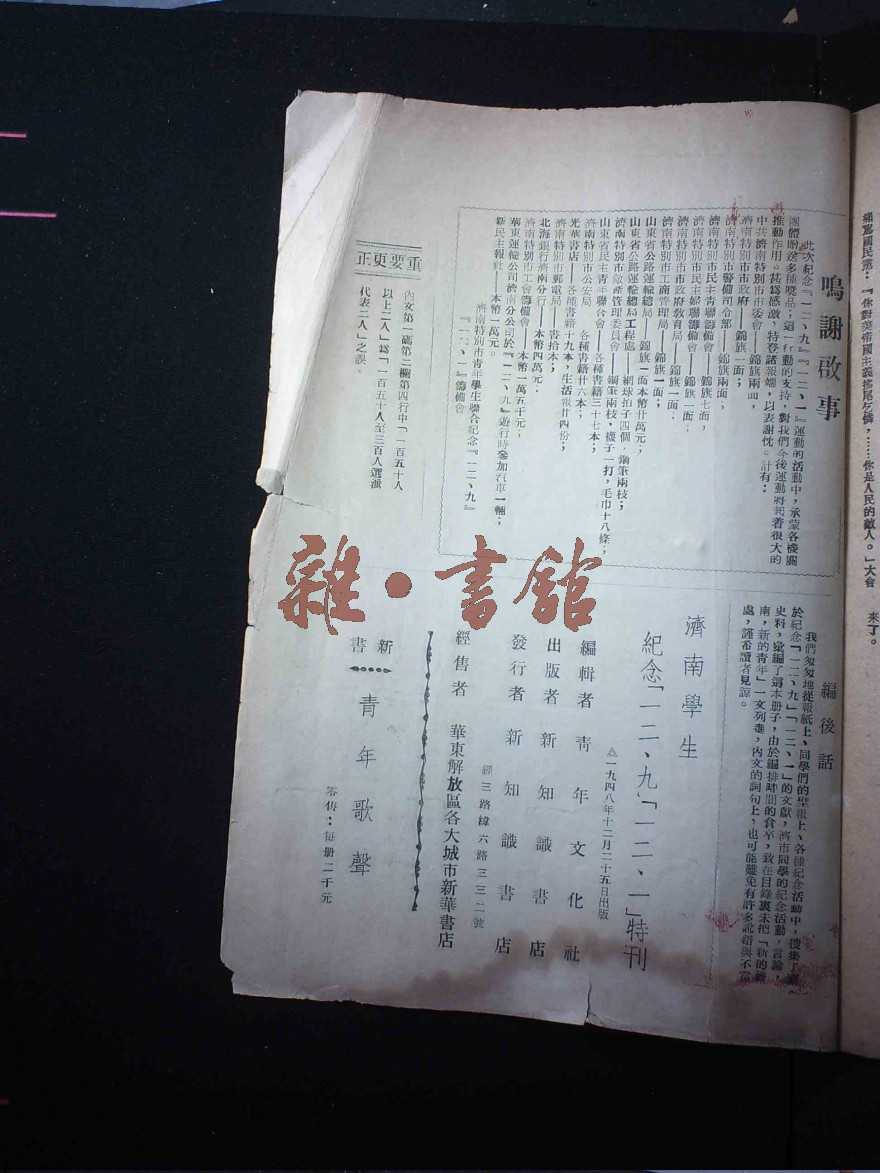 痛罵國民黨：『你對美帝國主義搖尾乞憐，……你是人民的敵人。」大會
來了。
鳴謝啟事
此次紀念『一二、九』『一二、一』運動的活動中，承蒙各機關
團體贈送多種獎品；這一行動的支持，對我們今後運動將起着很大的
推動作用。甚爲感激，特登諸報端，以表謝忱。計有：
中共濟南特別市市委會——錦旗兩面，
濟南特別市市政府——錦旗一面；
濟南特別市警備司令部——錦旗兩面，
濟南特別市民主青聯籌備會——錦旗七面，
濟南特別市民主婦聯籌備會——錦旗一面；
濟南特別市政府教育局——錦旗一面；
濟南特別市工商管理局——錦旗一面；
山東省公路運輸總局——錦旗一面本幣廿萬元；
山東省公路運輸總局工程處——網球拍子四個，鋼筆兩枝；
濟南特別市敵產管理委員會——鋼筆兩枝，襪子一打，毛巾十八條；
山東省民主青年聯合會——各種書籍三十七本；
濟南特別市公安局　各種書籍廿六本；
光華書店——各種書籍十九本，生活報廿四份；
濟南特別市郵電局——書拾本；
北海銀行濟南分行——本幣四萬元．
濟南特別市工會籌備會——本幣一萬五千元；
華東運輸公司濟南分公司於『一二、九』遊行時參加汽車一輛；
新民主報社——本幣一萬元。
濟南特別市青年學生聯合紀念『一二、九』
『一二、一』籌備會
重要更正
內文第一碼第二欄第四行中「一百五十人
以上二人」爲「一百五十人至三百人選派
代表二人」之誤。
編後話
我們匆匆地從報紙上、同學們的壁報上、各種紀念活動中，搜集了關
於紀念「一二、九」「一二、一」的文獻，濟市同學的紀念活動，言論，
史料，彙編了這本册子，由於編排時間的倉卒，致在目錄裏未把「新的濟
南，新的青年」一文列進，內文的詞句上，也可能難免有許多訛錯與不當
處，謹希讀者見諒。
濟南學生
紀念「一二、九」「一二、一」特刊
△一九四八年十二月二十五日出版
編輯者　青年文化社
出版者　新知識書店
發行者　新知識書店
經三路緯六路三三二號
經售者　華東解放區各大城市新華書店
新書
青年歌聲
零售：每册二千元
雜·書館